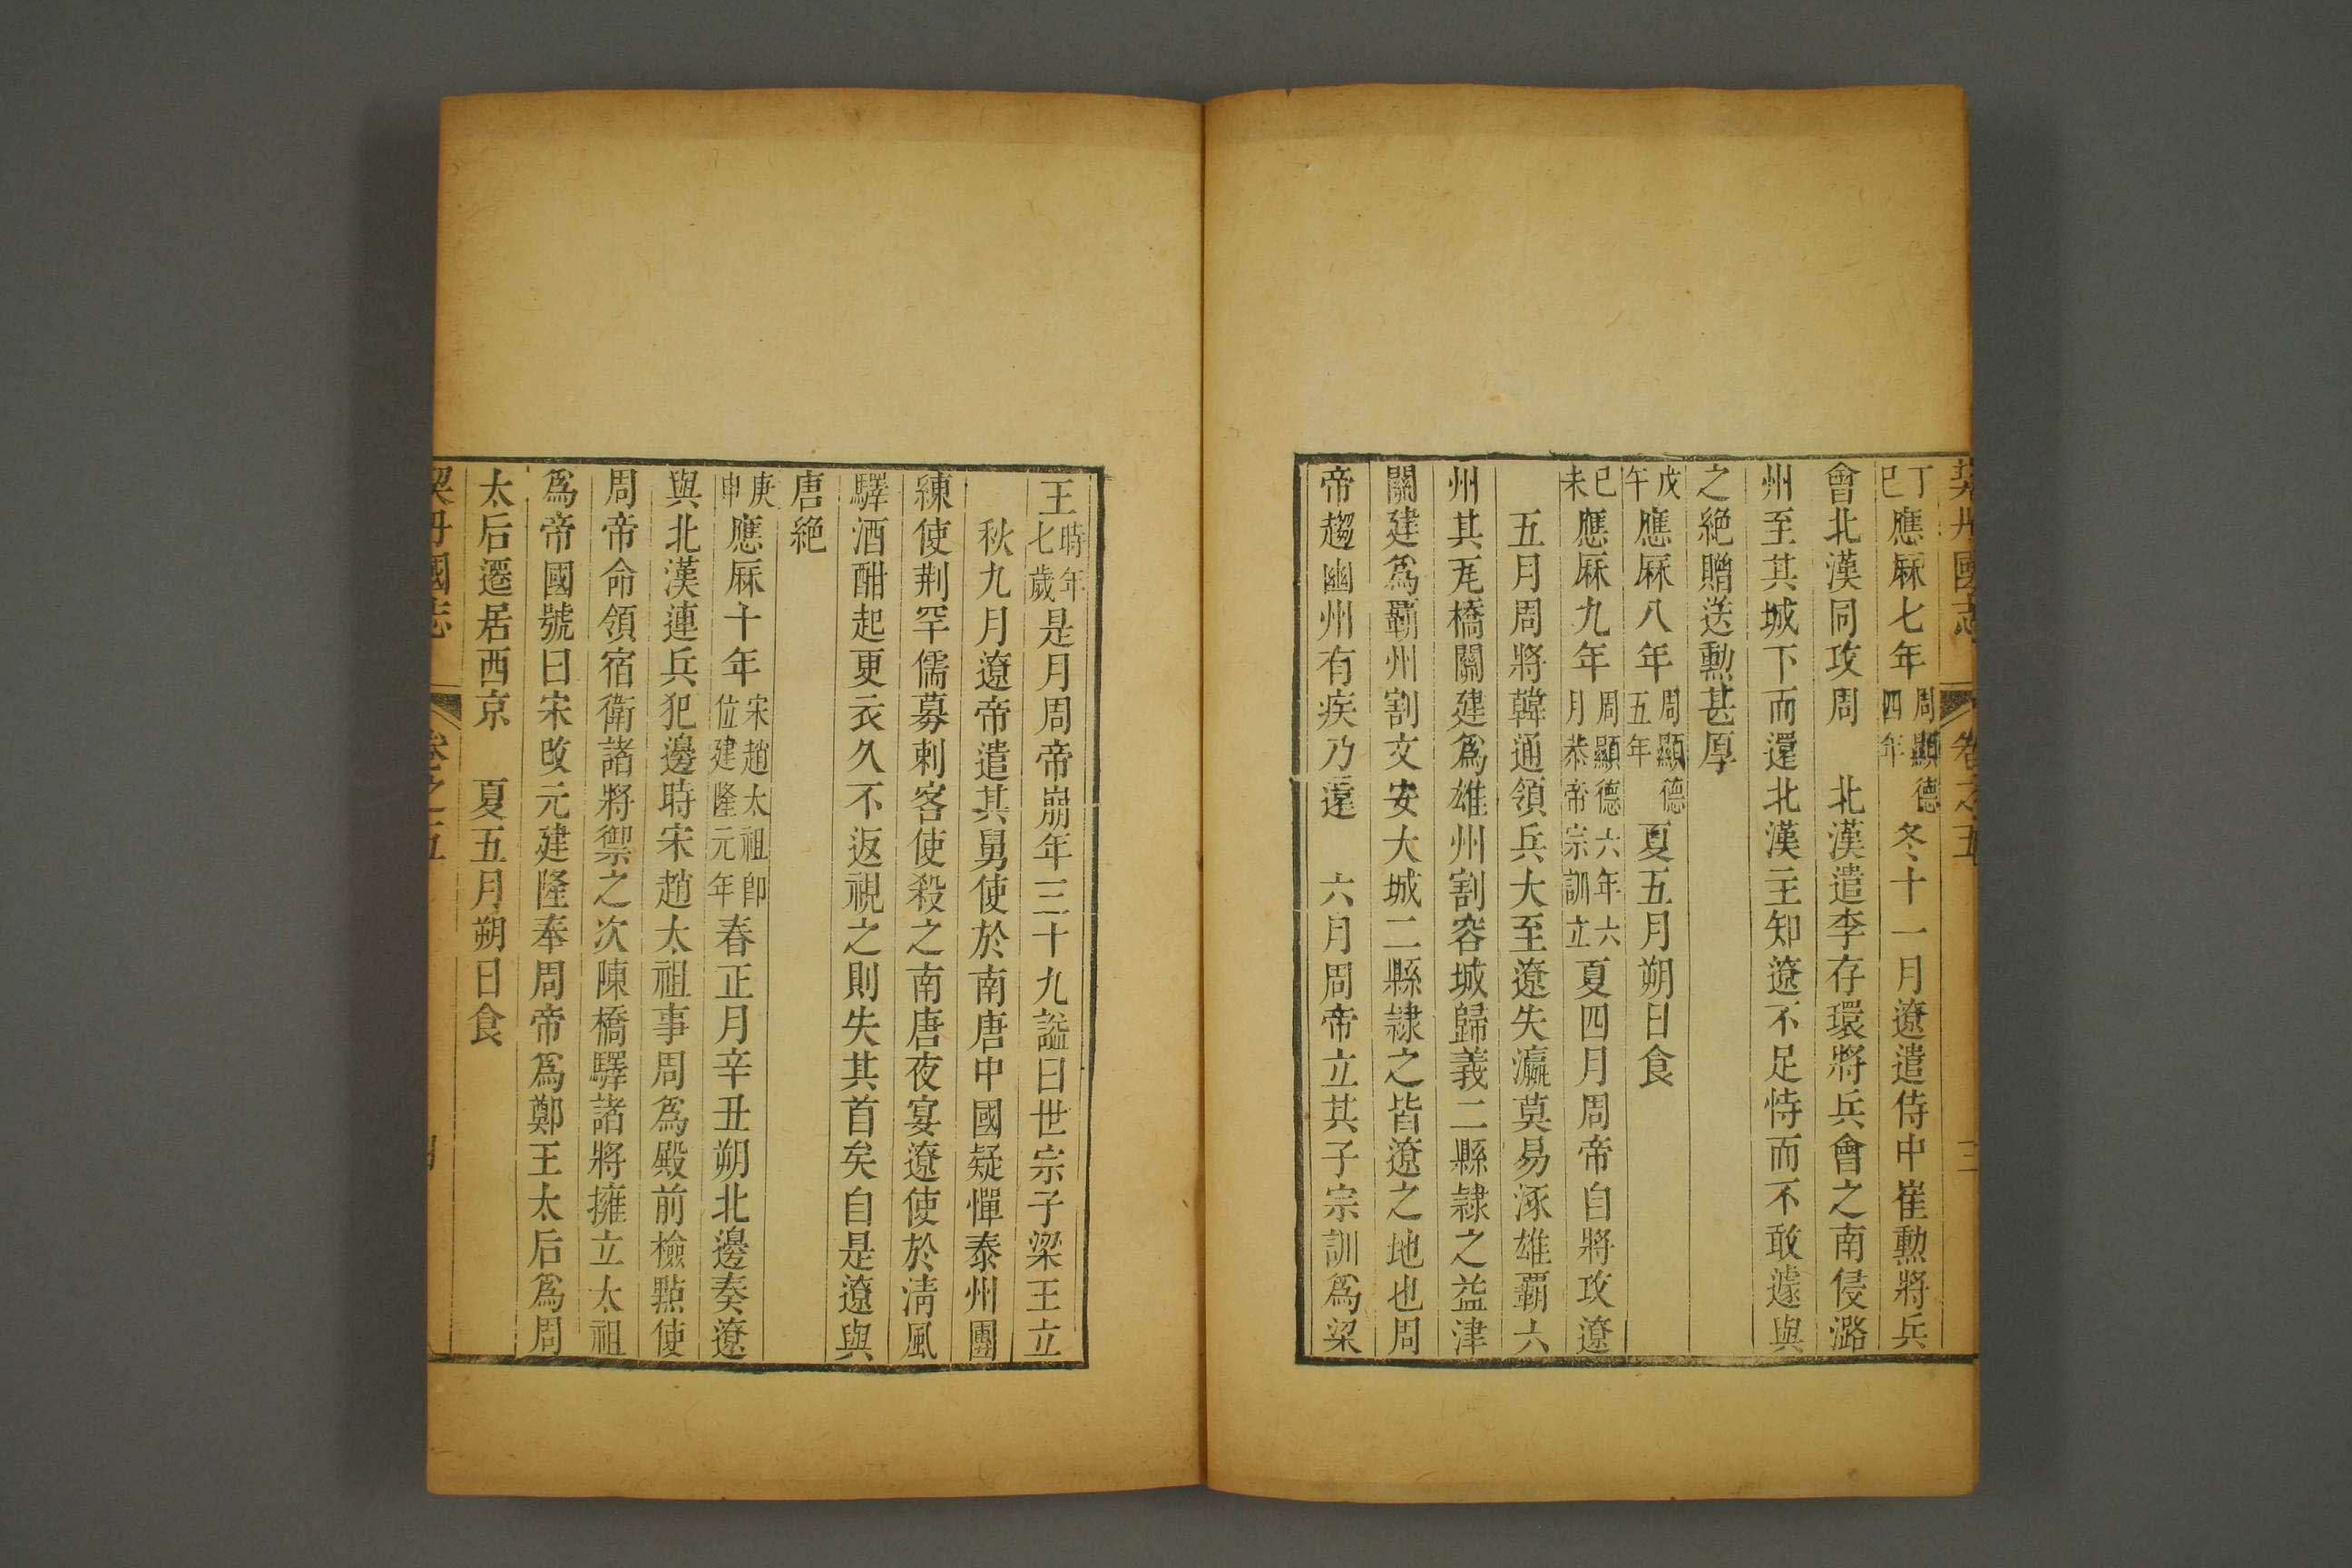 契丹國志 卷之五 三
丁巳應厤七年周顯德四年冬十一月遼遣侍中崔勲將兵
會北漢同攻周 北漢遣李存環將兵會之南侵潞
州至其城下而還北漢主知遼不足恃而不敢遽與
之絶贈送勲甚厚
戊午應厤八年周顯德五年夏五月朔日食
已未應厤九年周顯德六年六月恭帝宗訓立夏四月周帝自將攻遼
五月周將韓通領兵大至遼失瀛莫易涿雄覇六
州其瓦橋關建爲雄州割容城歸義二縣隷之益津
關建爲覇州割文安大城二縣隷之皆遼之地也周
帝趨幽州有疾乃還 六月周帝立其子宗訓爲梁
王時年七歲是月周帝崩年三十九謚曰世宗子梁王立
秋九月遼帝遣其舅使於南唐中國疑憚泰州團
練使荆罕儒募刺客使殺之南唐夜宴遼使於淸風
驛酒酣起更衣久不返視之則失其首矣自是遼與
唐絶
庚申應厤十年宋趙太祖卽位建隆元年春正月辛丑朔北邊奏遼
與北漢連兵犯邊時宋趙太祖事周爲殿前檢點使
周帝命領宿衛諸將禦之次陳橋驛諸將擁立太祖
爲帝國號曰宋改元建隆奉周帝爲鄭王太后爲周
太后遷居西京 夏五月朔日食
契丹國志 卷之五 四